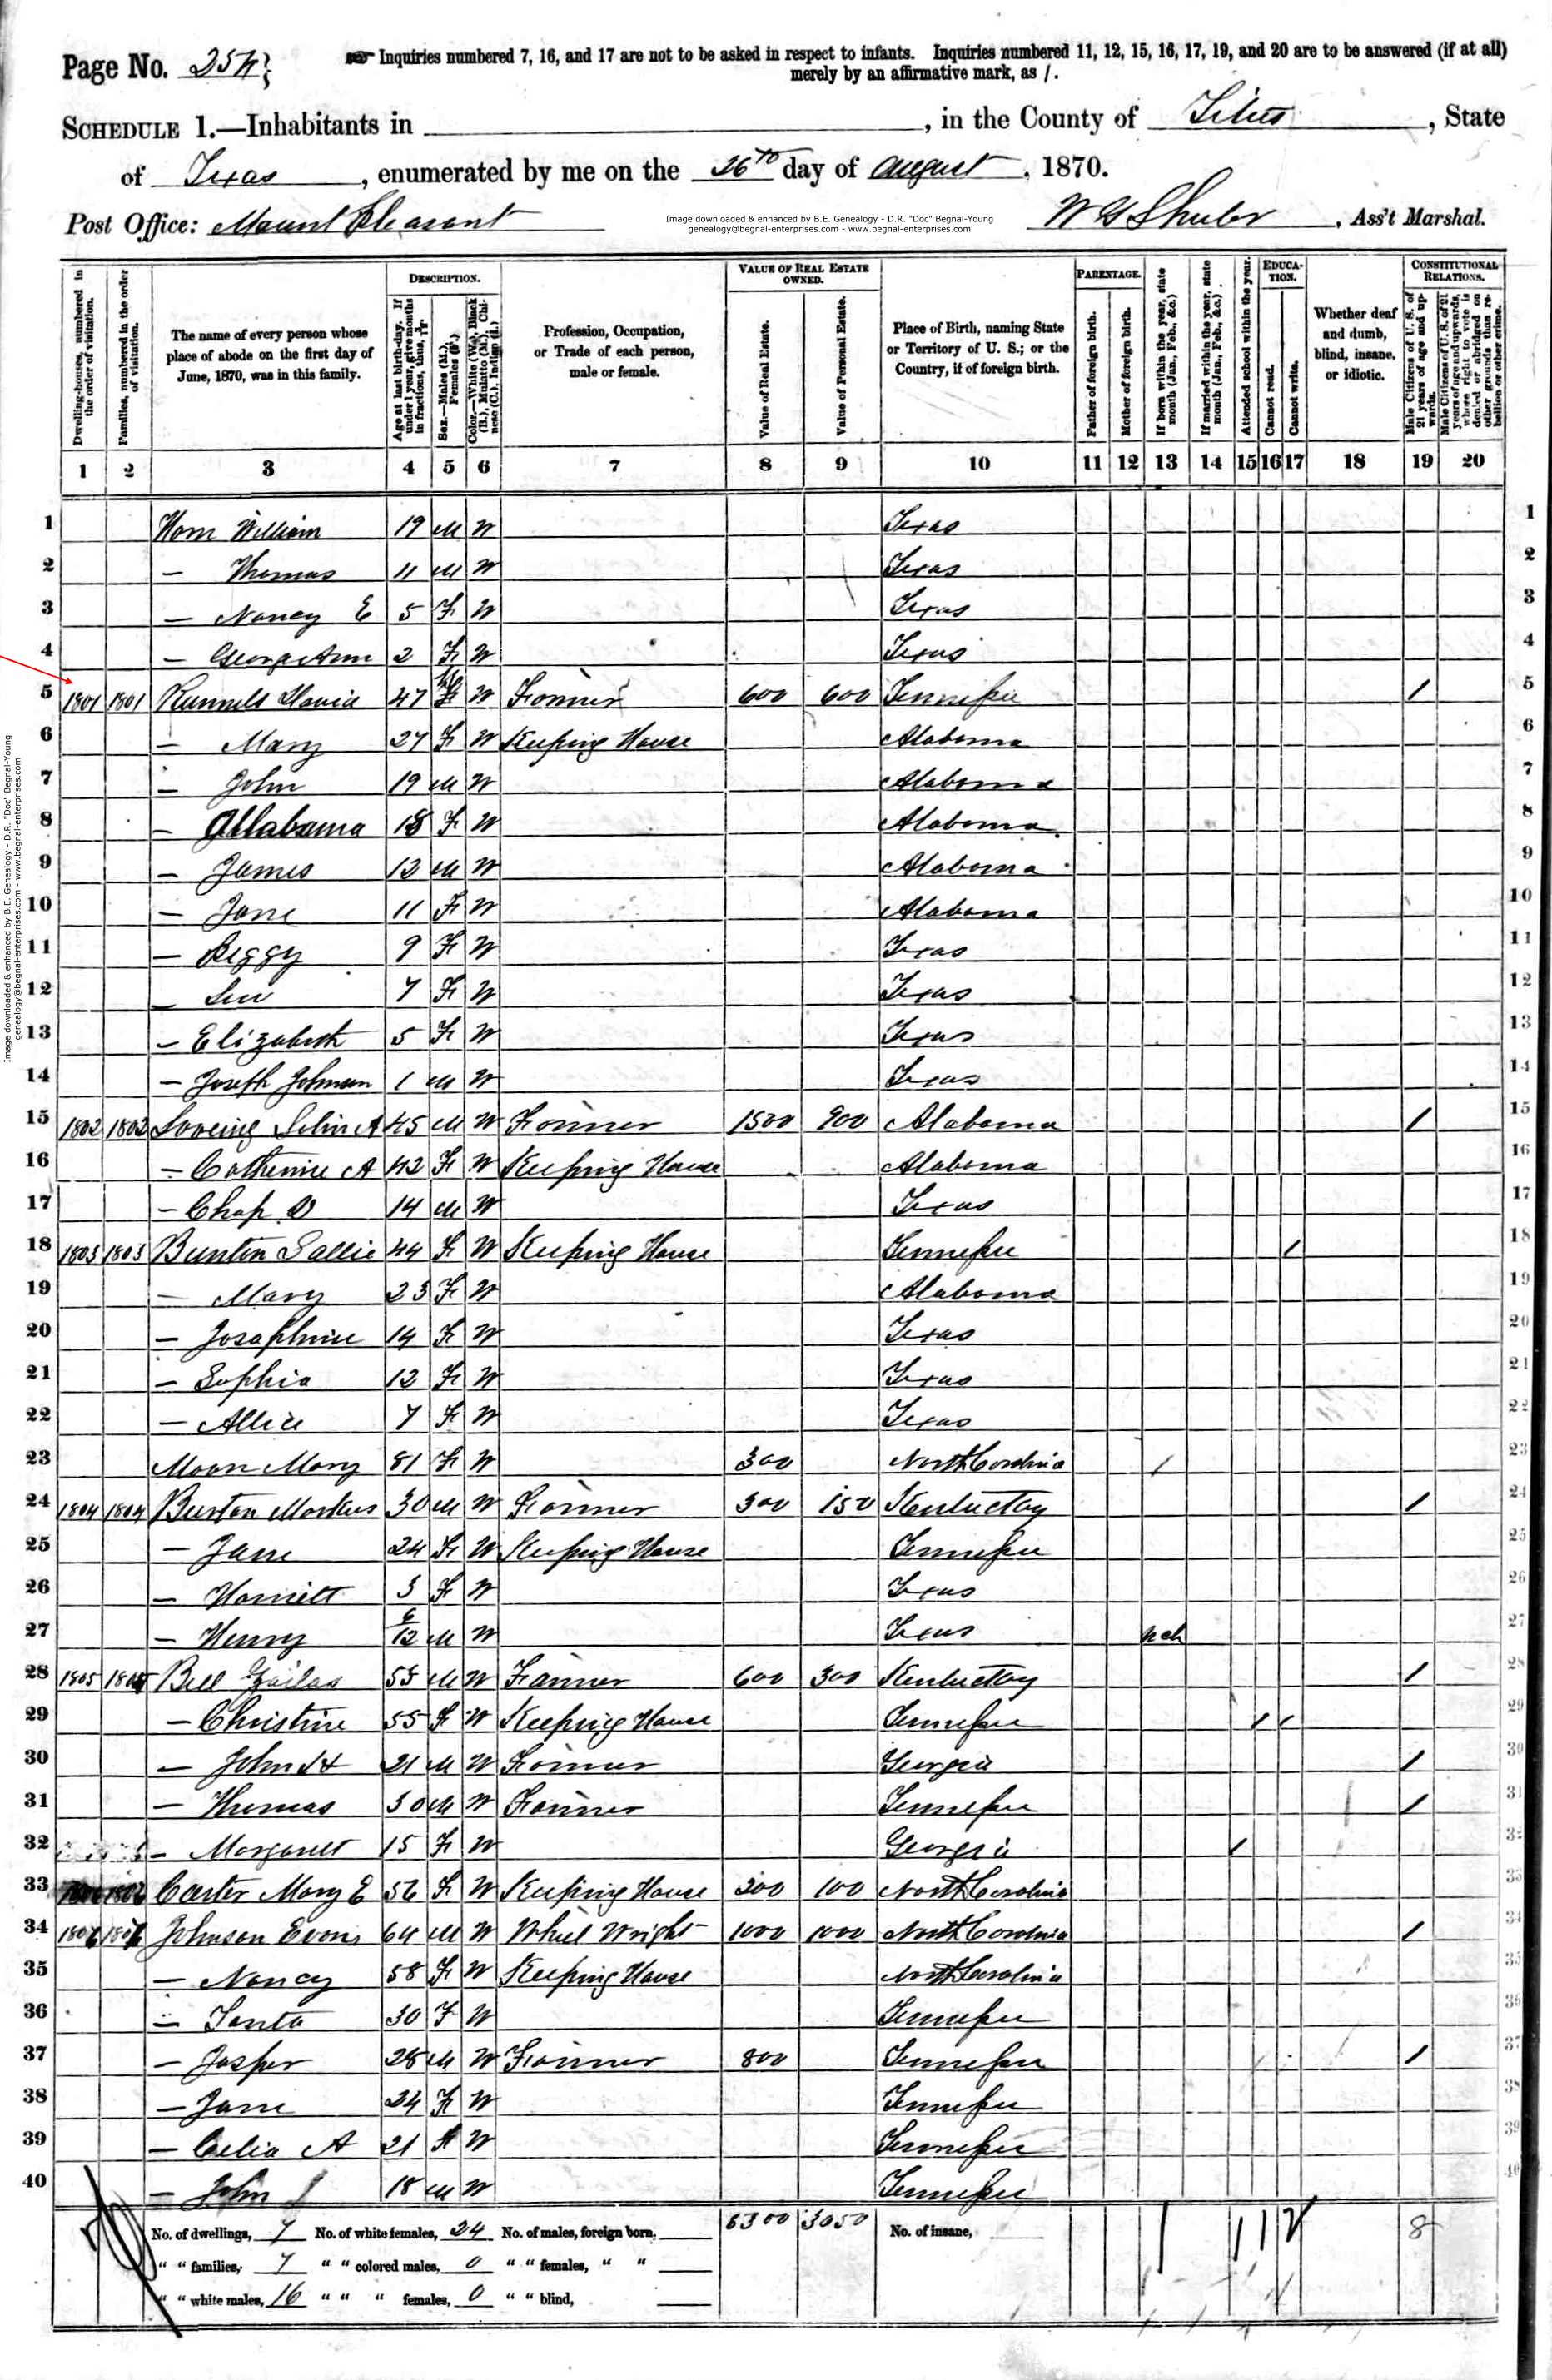 Page No. 254
Inquiries numbered 7, 16, and 17 are not to be asked in respect to infants. Inquiries numbered 11, 12, 15, 16, 17, 19, and 20 are to be answered (if at all)
merely by an affirmative mark, as /.
SCHEDULE 1.—Inhabitants in , in the County of Titus, State
of Texas, enumerated by me on the 26th day of August, 1870.
Image downloaded & enhanced by B.E. Genealogy - D.R. "Doc" Begnal-Young
genealogy@begnal-enterprises.com - www.begnal-enterprises.com
Post Office: Mount Pleasant , Ass't Marshal.
Dwelling-houses, numbered in the order of visitation.
Families, numbered in the order of visitation.
The name of every person whose place of abode on the first day of June, 1870, was in this family.
DESCRIPTION.
Age at last birth-day. If under 1 year, give months in fractions, thus, 3/12.
Sex.—Males (M.), Females (F.)
Color.—White (W.), Black (B.), Mulatto (M.), Chinese (C.), Indian (I.)
Profession, Occupation, or Trade of each person, male or female.
VALUE OF REAL ESTATE OWNED.
Value of Real Estate.
Value of Personal Estate.
Place of Birth, naming State or Territory of U. S.; or the Country, if of foreign birth.
PARENTAGE.
Father of foreign birth.
Mother of foreign birth.
If born within the year, state month (Jan., Feb., &c.)
If married within the year, state month (Jan., Feb., &c.)
Attended school within the year.
EDUCATION.
Cannot read.
Cannot write.
Whether deaf and dumb, blind, insane, or idiotic.
CONSTITUTIONAL RELATIONS.
Male Citizens of U. S. of 21 years of age and upwards.
Male Citizens of U. S. of 21 years of age and upwards, whose right to vote is denied or abridged on other grounds than rebellion or other crime.
1 2 3 4 5 6 7 8 9 10 11 12 13 14 15 16 17 18 19 20
1 Horn William 19 M W Texas 1
2 — Thomas 11 M W Texas 2
3 — Nancy E 5 F W Texas 3
4 — George Ann 2 F W Texas 4
5 1801 1801 Runnels David 47 M W Farmer 600 600 Tennessee / 5
6 — Mary 27 F W Keeping House Alabama 6
7 — John 19 M W Alabama 7
8 — Allabama 18 F W Alabama 8
9 — James 12 M W Alabama 9
10 — Jane 11 F W Alabama 10
11 — Peggy 9 F W Texas 11
12 — 7 F W Texas 12
13 — Elizabeth 5 F W Texas 13
14 — Joseph Johnson 1 M W Texas 14
15 1802 1802 Loveing A 45 M W Farmer 1500 900 Alabama / 15
16 — Catherine A 42 F W Keeping House Alabama 16
17 — Chap D 14 M W Texas 17
18 1803 1803 Bunton Sallie 44 F W Keeping House Tennessee / 18
19 — Mary 23 F W Alabama 19
20 — Josaphine 14 F W Texas 20
21 — Sophia 12 F W Texas 21
22 — Allice 7 F W Texas 22
23 Moon Mary 81 F W 300 North Carolina / 23
24 1804 1804 Burton Markus 30 M W Farmer 300 150 Kentucky / 24
25 — Jane 24 F W Keeping House Tennessee 25
26 — Harriett 3 F W Texas 26
27 — Henry 6/12 M W Texas 27
28 1805 1805 Bell 55 M W Farmer 600 300 Kentucky / 28
29 — Christine 55 F W Keeping House Tennessee / / 29
30 — John H 21 M W Farmer Georgia / 30
31 — Thomas 30 M W Farmer Tennessee / 31
32 — Margarett 15 F W Georgia / 32
33 Carter Mary E 56 F W Keeping House 200 100 North Carolina 33
34 1806 1806 Johnson Evans 64 M W Wheel Wright 1000 1000 North Carolina / 34
35 — Nancy 58 F W Keeping House North Carolina 35
36 — 30 F W Tennessee 36
37 — Jasper 28 M W Farmer 800 Tennessee / 37
38 — Jane 24 F W Tennessee 38
39 — Celia A 21 F W Tennessee 39
40 — John 18 M W Tennessee 40
No. of dwellings, 7 No. of white females, 24 No. of males, foreign born, 5300 3050 No. of insane, 8
" " families, 7 " " colored males, 0 " " females, " "
" " white males, 16 " " " females, 0 " " blind,
Image downloaded & enhanced by B.E. Genealogy - D.R. "Doc" Begnal-Young
genealogy@begnal-enterprises.com - www.begnal-enterprises.com